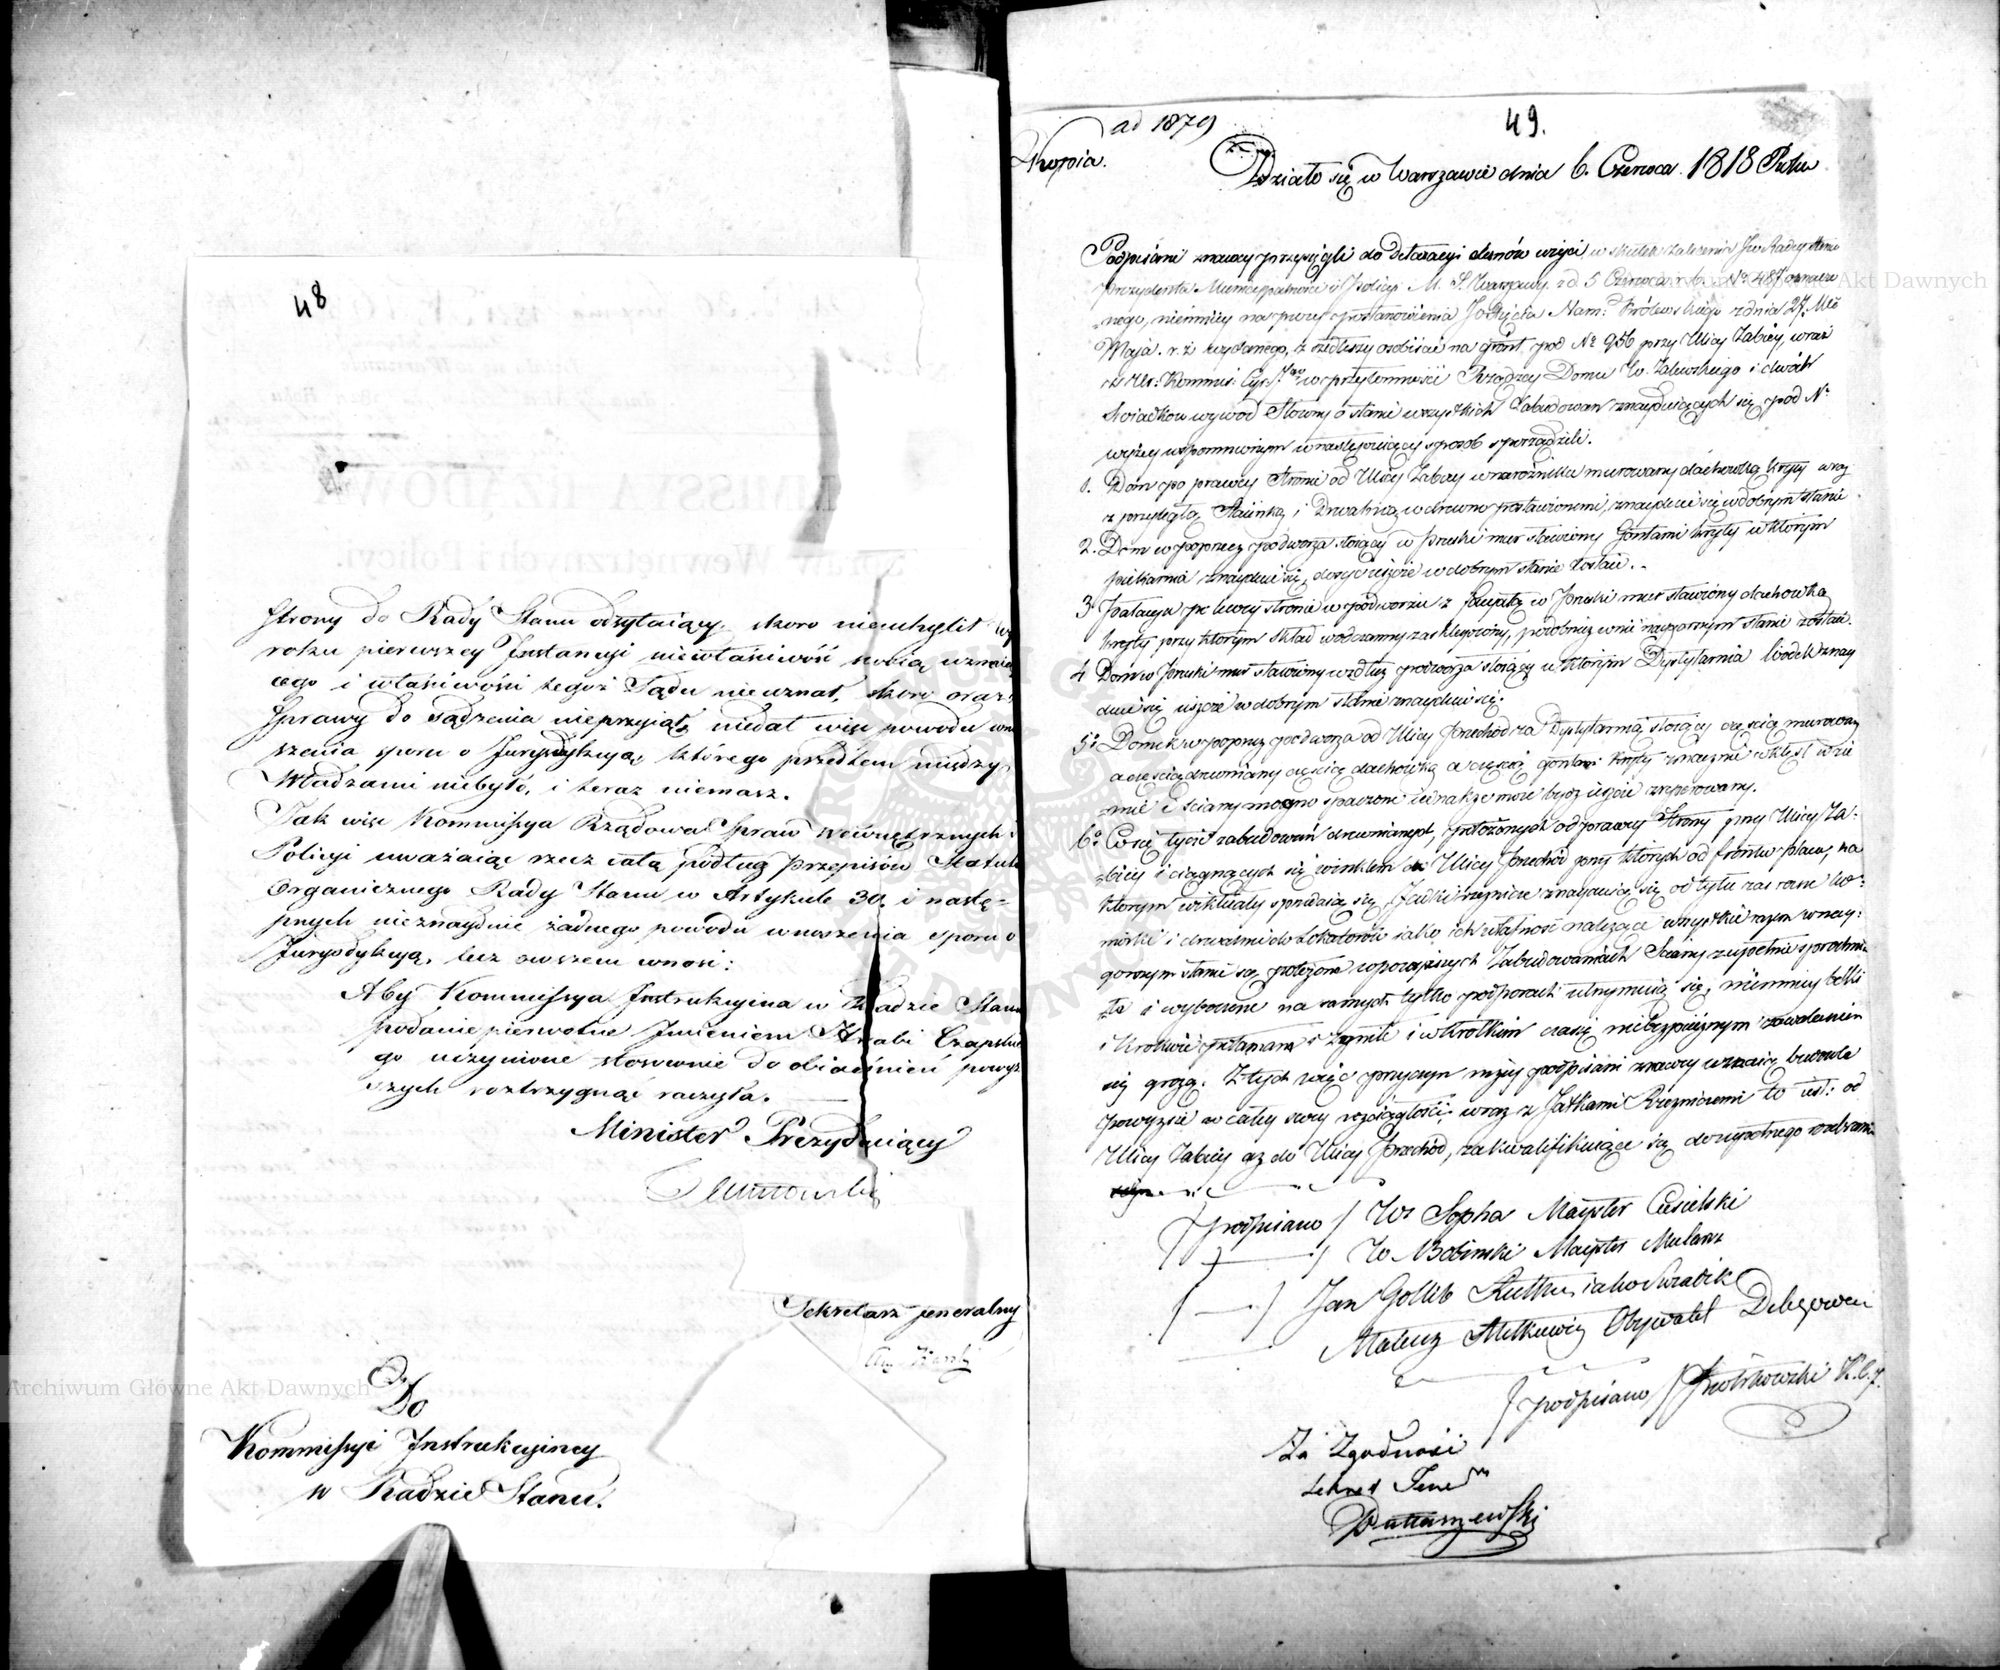 48
Strony do Rady Stanu odsyłaiący, skoro nieuchylił wy
roku pierwszey Instancyi niewłaściwość swoią uznaią
cego i właściwości tegoż Sądu nieuznał, skoro oraz
Sprawy do sądzenia nieprzyiął, niedał więc powodu wno
szenia sporu o Jurysdykcyą, którego przedtem między
Władzami niebyło, i teraz niemasz.
Tak więc Kommissya Rządowa Spraw Wewnętrznych i
Policyi uważaiąc rzecz całą podług przepisów Statutu
Organicznego Rady Stanu w Artykule 30. i nastę=
pnych nieznayduie żadnego powodu wnoszenia sporu o
Jurysdykcyą, lecz owszem wnosi:
Aby Kommissya Instrukcyina w Radzie Stanu
podanie pierwotne Imieniem Hrabi Czapskie
go uczynione stosownie do obiaśnień powyż
szych roztrzygnąć raczyła.
Minister Prezyduiący
Sekretarz jeneralny
Do
Kommissyi Instrukcyiney
w Radzie Stanu.
ad 1879
Kopia.
49.
Działo się w Warszawie dnia 6. Czerwca 1818 Roku
Podpisani znawcy przysięgli do Detaxacyi domów użyci w skutek zalecenia JW Radcy Stanu
Prezydenta Municypalności i Policyi M. S. Warszawy od 5 Czerwca r. b. No 487 oznaczo
nego, niemniey na mocy postanowienia JO Xięcia Nam: Królewskiego z dnia 27. Mca
Maja r. z. wydanego, zszedłszy osobiście na grunt pod No 956 przy Ulicy Żabiey, wraz
z Ur: Kommis: Cyr: 1go w przytomności Rządzcy Domu W. Zalewskiego i dwóch
Swiadków wywód Słowny o stanie wszystkich Zabudowań znayduiących się pod No
wyżey wspomnionym w następuiący sposób sporządzili.
1. Dom po prawey Stronie od Ulicy Żabiey w narożniku murowany dachówką kryty wraz
z przyległą Stainką i Drwalnią w drewno postawionemi, znayduie się w dobrym stanie.
2. Dom w poprzecz podworza stoiący w Pruski mur stawiony Gontami kryty w którym
piekarnia znayduie się, dosyć ieszcze w dobrym stanie zostaie.
3 Pałacyk po lewey stronie w podworzu z facyatą w Pruski mur stawiony dachówką
kryty przy którym skład wodczanny zasklepiony, podobnież w nie naygorszym stanie zostaie.
4 Dom w Pruski mur stawiony wzdłuż podworza stoiący w którym Dystylarnia Wodek znay
duie się ieszcze w dobrym stanie znayduie się.
5o Domek w poprzecz podworza od Ulicy Przechód za Dystylarnią stoiący częścią murowany
a częścią drewniany częścią dachówką a częścią gontami kryty znacznie wklęsł w zie
mię i ściany mocno spaczone iednakże może bydź ieszcze zreperowany.
6o Część tycze zabudowań drewnianych, położonych od prawey Strony przy Ulicy Ża=
biey i ciągnących się winklem ku Ulicy Przechód przy których od frontu placu, na
którym wiktuały sprzedaią się, Jadki rzeźnicze znayduią się od tyłu zaś różne ko=
mórki i drwalnie do Lokatorów iako ich własność należące wszystkie razem w nay=
gorszym stanie są położone w powyższych Zabudowaniach Ściany zupełnie sprochnia
łe i wyboczone na samych tylko podporach utrzymuią się, niemniey belki
i krokwie połamane i zgniłe i w krótkim czasie niebezpiecznym zawaleniem
się grożą. Z tych więc przyczyn niżey podpisani znawcy uznaią budowle
powyższe w całey swey rozciągłości wraz z Jatkami Rzeźniczemi to iest: od
Ulicy Żabiey aż do Ulicy Przechód, zakwalifikuiące się do zupełnego rozebrania
/podpisano/ W Sopha Mayster Ciesielski
/ — / W Bobinski Mayster Mularz
/ — / Jan Gottlib Ruthn iako Swiadek
Mateusz Mitkiewicz Obywatel Delegowany
/podpisano/ Piotrkowski K.C.J.
Za Zgodność
Sekret Jene